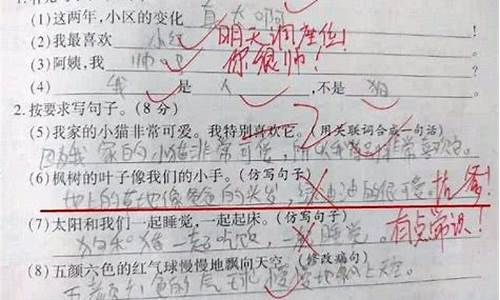 (1)这两年,小区的变化 真大啊
(2)我最喜欢 小红 明天调座位!
(3)阿姨,我 帅吧 你很帅!
(4) 我 是 人 ,不是 狗
2.按要求写句子。(8分)
(5)我家的小猫非常可爱。我特别喜欢它。(用关联词合成一句话)
因为我家的小猫非常可爱,所以我特别非常喜欢它。
(6)枫树的叶子像我们的小手。(仿写句子)
地上的草地像爸爸的头发, 的很可爱。抗爹!
(7)太阳和我们一起睡觉,一起起床。(仿写句子)
狗和猪一起吃饭,一起睡觉。 有点常识!
(8)五颜六色的红气球慢慢地飘向天空。(修改病句)
五颜六色的气球慢慢地飘上天空。